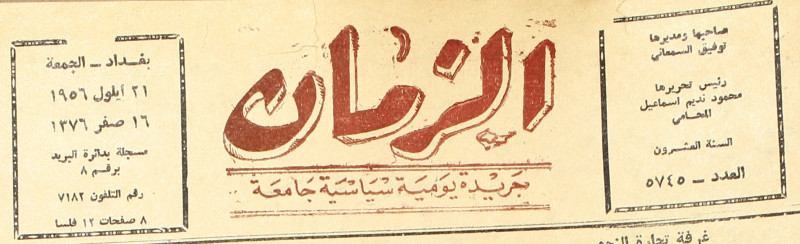 صاحبها ومديرها
توفيق السمعاني
رئيس تحريرها
محمود نديم اسماعيل
المحامي
السنة العشرون
العدد – ٥٧٤٥
الزمان
جريدة يومية سياسية جامعة
بغداد – الجمعة
٢١ ايلول ١٩٥٦
١٦ صفر ١٣٧٦
مسجلة بدائرة البريد
برقم ٨
رقم التلفون ٧١٨٢
٨ صفحات ١٢ فلسا
غرفة تجارة